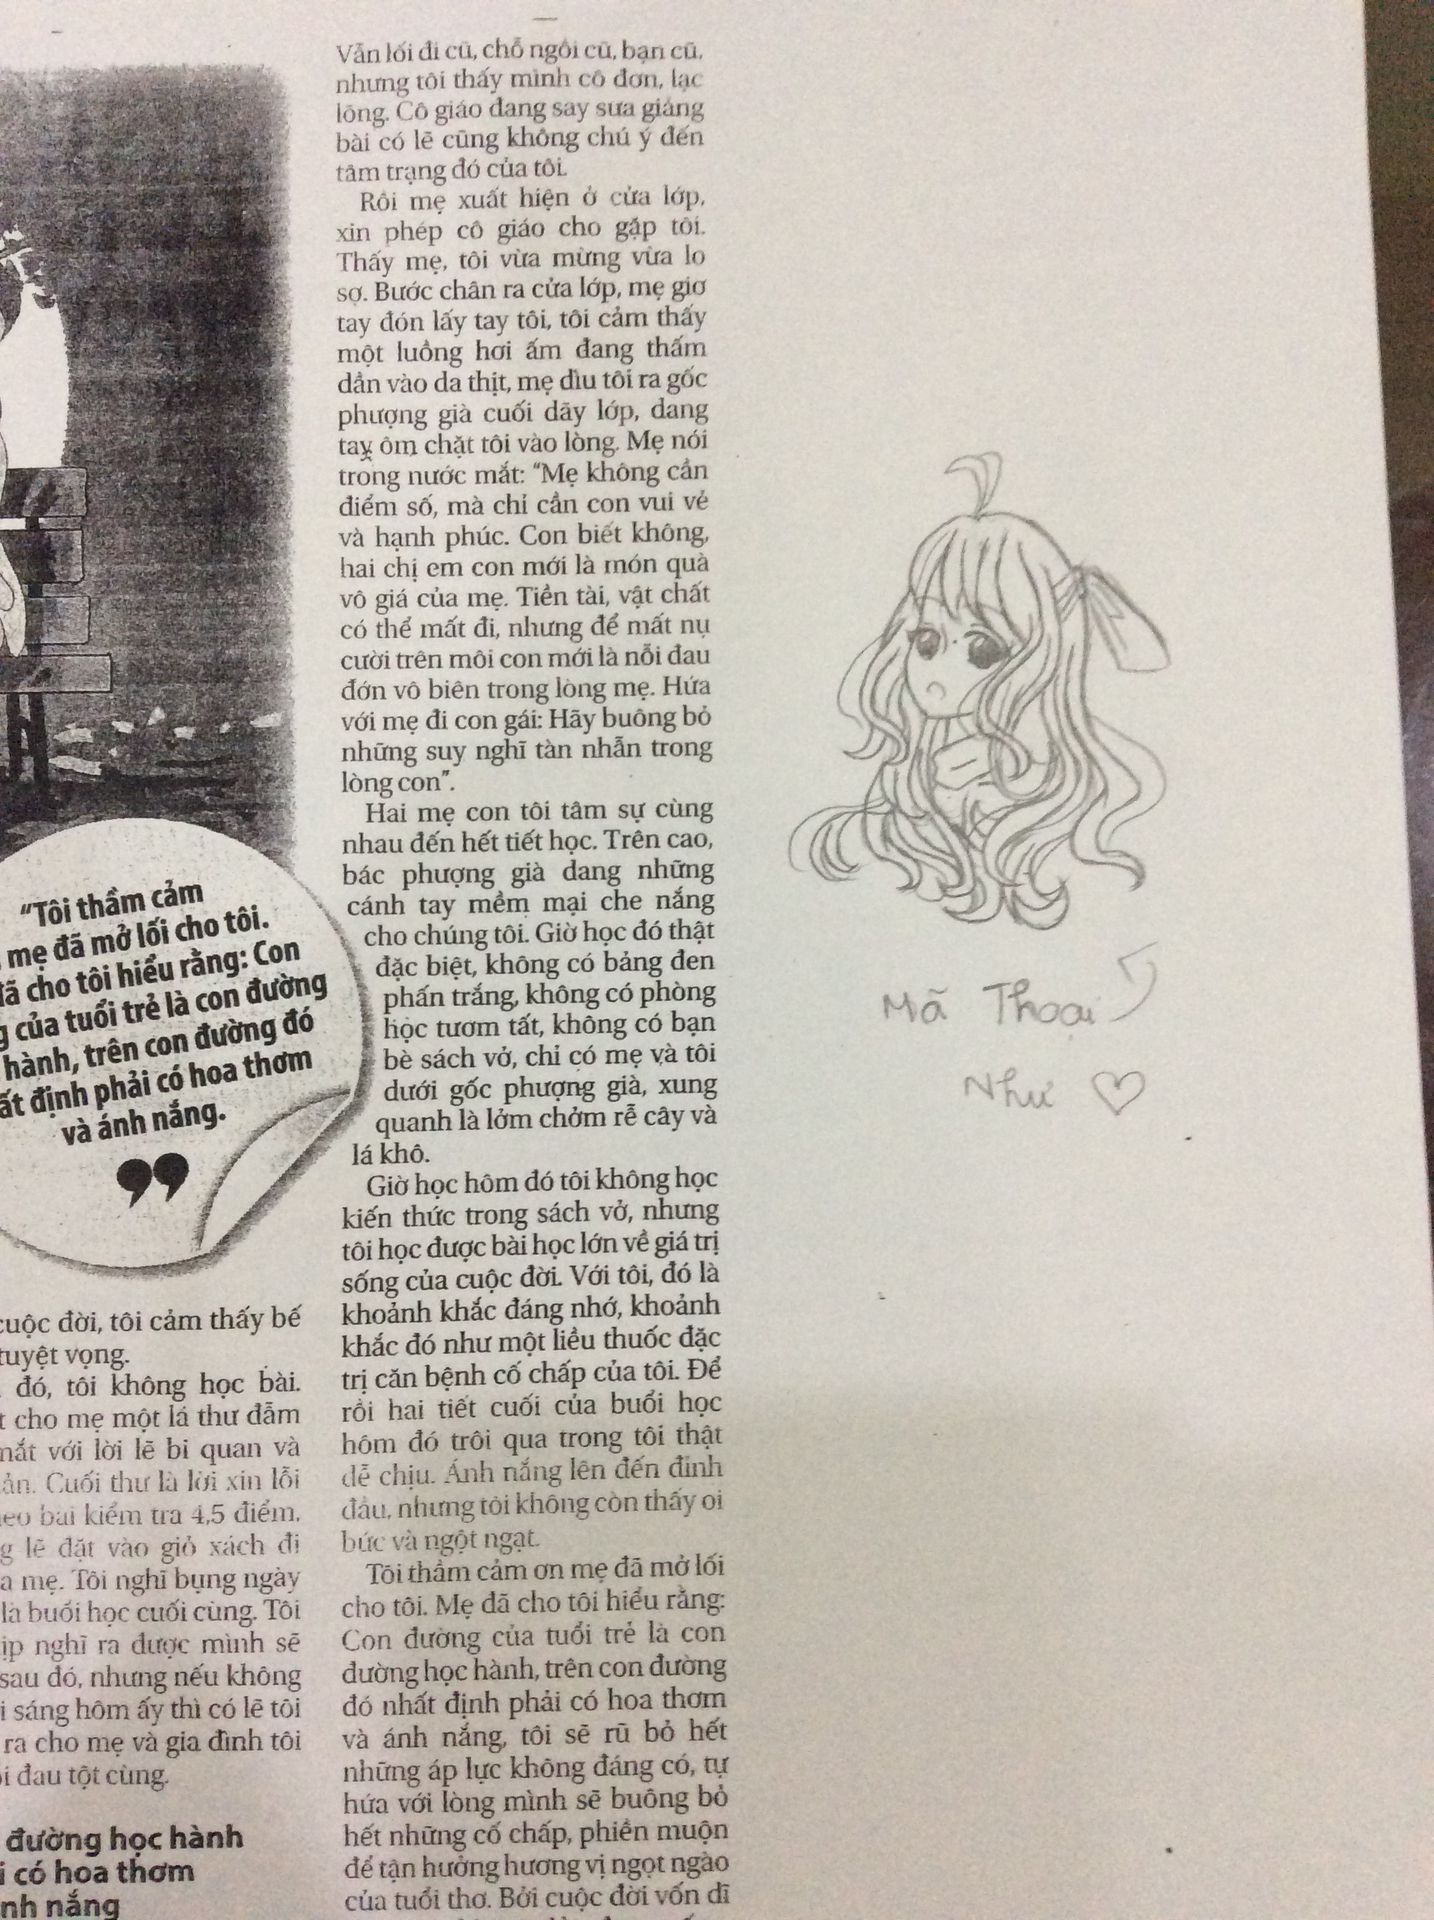 “Tôi thầm cảm
mẹ đã mở lối cho tôi.
đã cho tôi hiểu rằng: Con
của tuổi trẻ là con đường
hành, trên con đường đó
ất định phải có hoa thơm
và ánh nắng.
”
cuộc đời, tôi cảm thấy bế
tuyệt vọng.
đó, tôi không học bài.
cho mẹ một lá thư đẫm
mắt với lời lẽ bi quan và
Cuối thư là lời xin lỗi
bài kiểm tra 4,5 điểm,
lẽ đặt vào giỏ xách đi
mẹ. Tôi nghĩ bụng ngày
là buổi học cuối cùng. Tôi
nghĩ ra được mình sẽ
sau đó, nhưng nếu không
sáng hôm ấy thì có lẽ tôi
ra cho mẹ và gia đình tôi
đau tột cùng.
đường học hành
có hoa thơm
nắng
Vẫn lối đi cũ, chỗ ngồi cũ, bạn cũ,
nhưng tôi thấy mình cô đơn, lạc
lõng. Cô giáo đang say sưa giảng
bài có lẽ cũng không chú ý đến
tâm trạng đó của tôi.
Rồi mẹ xuất hiện ở cửa lớp,
xin phép cô giáo cho gặp tôi.
Thấy mẹ, tôi vừa mừng vừa lo
sợ. Bước chân ra cửa lớp, mẹ giơ
tay đón lấy tay tôi, tôi cảm thấy
một luồng hơi ấm đang thấm
dần vào da thịt, mẹ dìu tôi ra gốc
phượng già cuối dãy lớp, dang
tay ôm chặt tôi vào lòng. Mẹ nói
trong nước mắt: “Mẹ không cần
điểm số, mà chỉ cần con vui vẻ
và hạnh phúc. Con biết không,
hai chị em con mới là món quà
vô giá của mẹ. Tiền tài, vật chất
có thể mất đi, nhưng để mất nụ
cười trên môi con mới là nỗi đau
đớn vô biên trong lòng mẹ. Hứa
với mẹ đi con gái: Hãy buông bỏ
những suy nghĩ tàn nhẫn trong
lòng con”.
Hai mẹ con tôi tâm sự cùng
nhau đến hết tiết học. Trên cao,
bác phượng già dang những
cánh tay mềm mại che nắng
cho chúng tôi. Giờ học đó thật
đặc biệt, không có bảng đen
phấn trắng, không có phòng
học tươm tất, không có bạn
bè sách vở, chỉ có mẹ và tôi
dưới gốc phượng già, xung
quanh là lởm chởm rễ cây và
lá khô.
Giờ học hôm đó tôi không học
kiến thức trong sách vở, nhưng
tôi học được bài học lớn về giá trị
sống của cuộc đời. Với tôi, đó là
khoảnh khắc đáng nhớ, khoảnh
khắc đó như một liều thuốc đặc
trị căn bệnh cố chấp của tôi. Để
rồi hai tiết cuối của buổi học
hôm đó trôi qua trong tôi thật
dễ chịu. Ánh nắng lên đến đỉnh
đầu, nhưng tôi không còn thấy oi
bức và ngột ngạt.
Tôi thầm cảm ơn mẹ đã mở lối
cho tôi. Mẹ đã cho tôi hiểu rằng:
Con đường của tuổi trẻ là con
đường học hành, trên con đường
đó nhất định phải có hoa thơm
và ánh nắng, tôi sẽ rũ bỏ hết
những áp lực không đáng có, tự
hứa với lòng mình sẽ buông bỏ
hết những cố chấp, phiền muộn
để tận hưởng hương vị ngọt ngào
của tuổi thơ. Bởi cuộc đời vốn dĩ
Mã Thoại
Như ♡